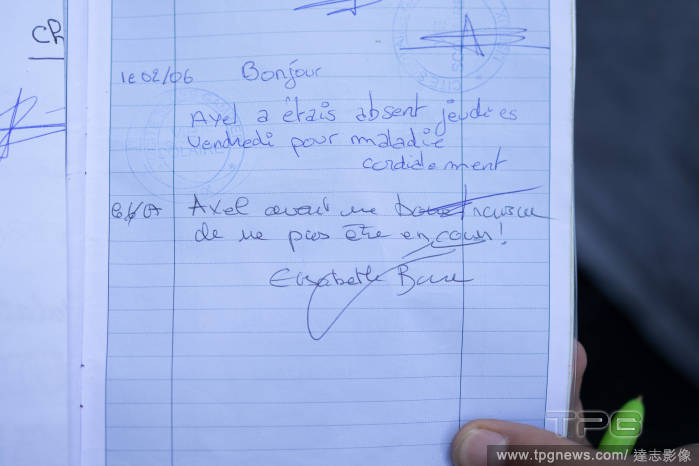 CR
le 02/06 Bonjour
Axel a êtais absent jeudi es
Vendredi pour maladie
cordialement
Axel avait une
de ne pas être en cours!
Elisabeth
TPG
www.tpgnews.com/達志影像